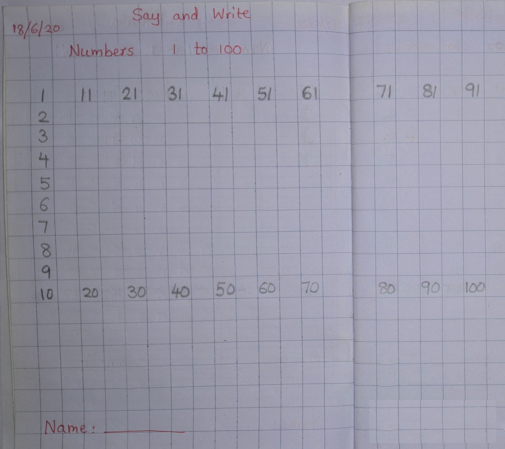 Say and Write
18/6/20
Numbers 1 to 100
1 11 21 31 41 51 61 71 81 91
2
3
4
5
6
7
8
9
10 20 30 40 50 60 70 80 90 100
Name: